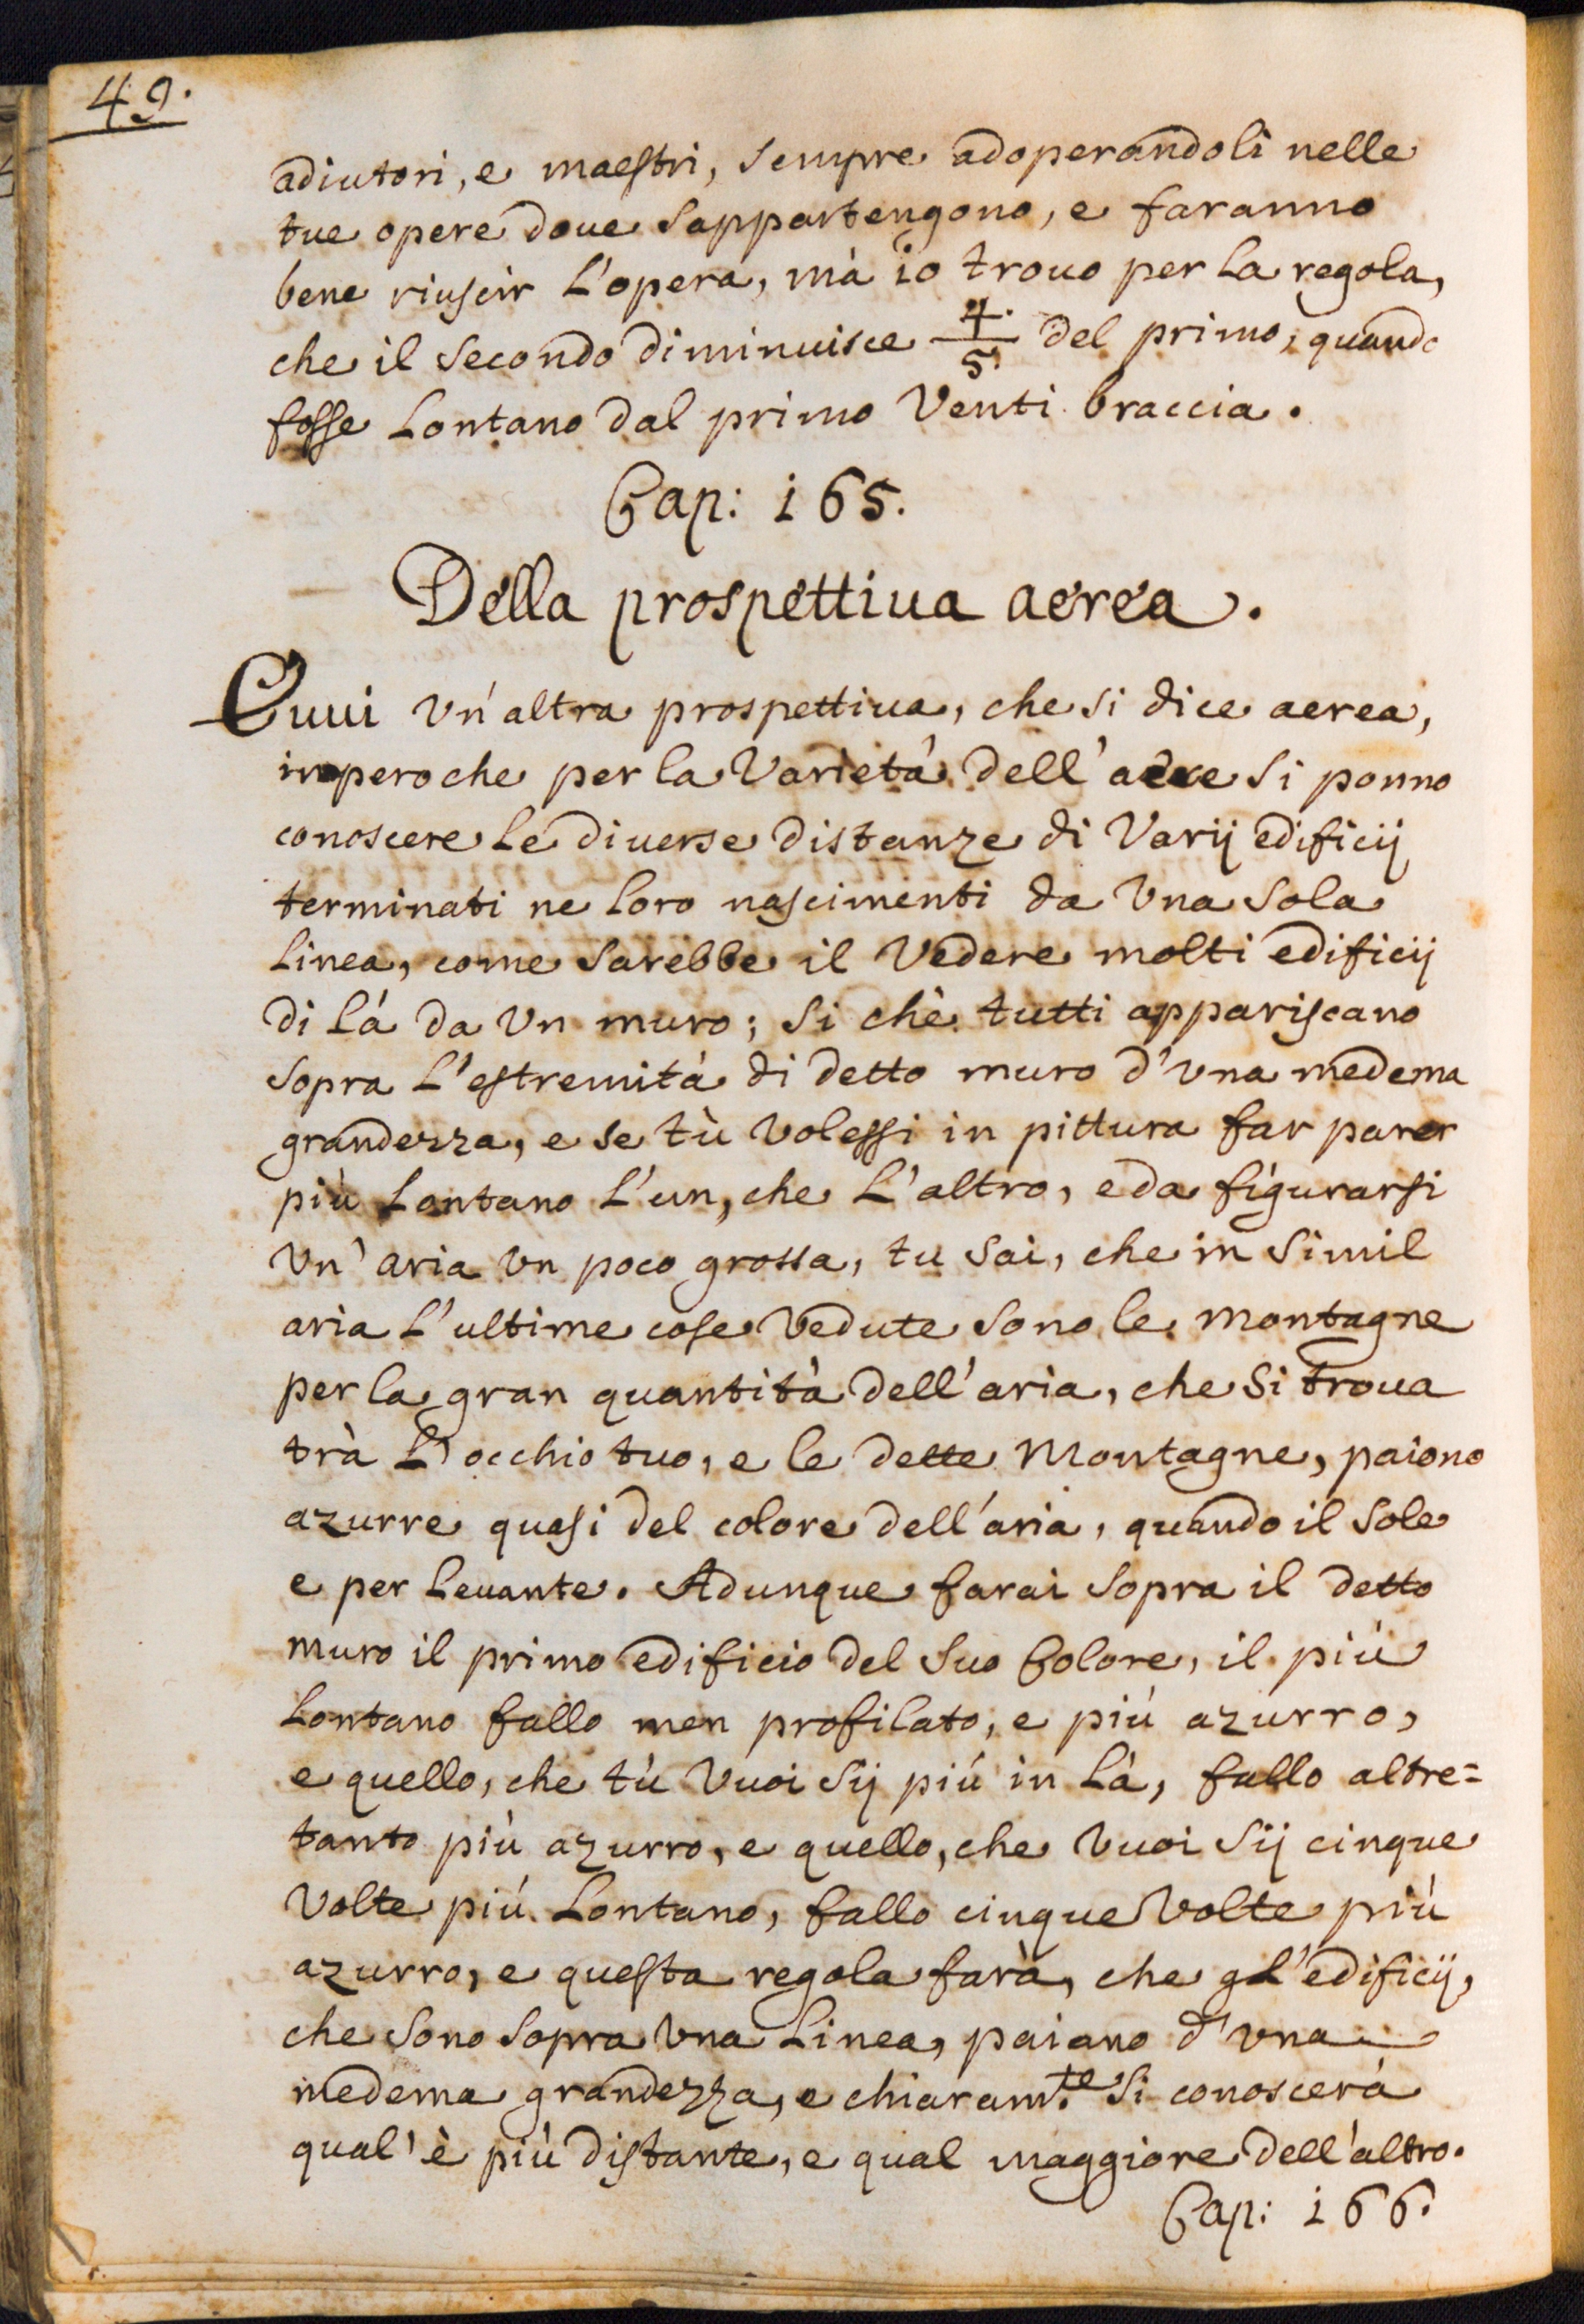 49.
adiutori, e maestri, sempre adoperandoli nelle
tue opere doue s'appartengono, e faranno
bene riuscir L'opera, mà io trouo per la regola,
che il secondo diminuisce 4/5 del primo, quando
fosse Lontano dal primo Venti braccia.
Cap: 165.
Della prospettiua aerea.
Euui vn'altra prospettiua, che si dice aerea,
imperoche per la Varietà dell'aere si ponno
conoscere le diuerse distanze di Varij edificij
terminati ne loro nascimenti da Vna sola
Linea, come sarebbe il Vedere molti edificij
di là da Vn muro; si chè tutti appariscano
sopra L'estremità di detto muro d'vna medema
grandezza, e se tù volessi in pittura far parer
più Lontano L'un, che L'altro, e da figurarsi
Vn'aria vn poco grossa, tu sai, che in simil
aria L'ultime cose vedute sono le montagne
per la gran quantità dell'aria, che si troua
trà L'occhio tuo, e le dette Montagne, paiono
azurre quasi del colore dell'aria, quando il Sole
e per Leuante. Adunque farai sopra il detto
muro il primo edificio del suo Colore, il più
Lontano fallo men profilato, e più azurro,
e quello, che tù Vuoi sij più in là, fallo altre=
tanto più azurro, e quello, che Vuoi sij cinque
Volte più Lontano, fallo cinque volte più
azurro, e questa regola farà, che gl'edificij,
che sono sopra vna Linea, paiano d'vna
medema grandezza, e chiaram.te si conoscerà
qual'è più distante, e qual maggiore dell'altro.
Cap: 166.